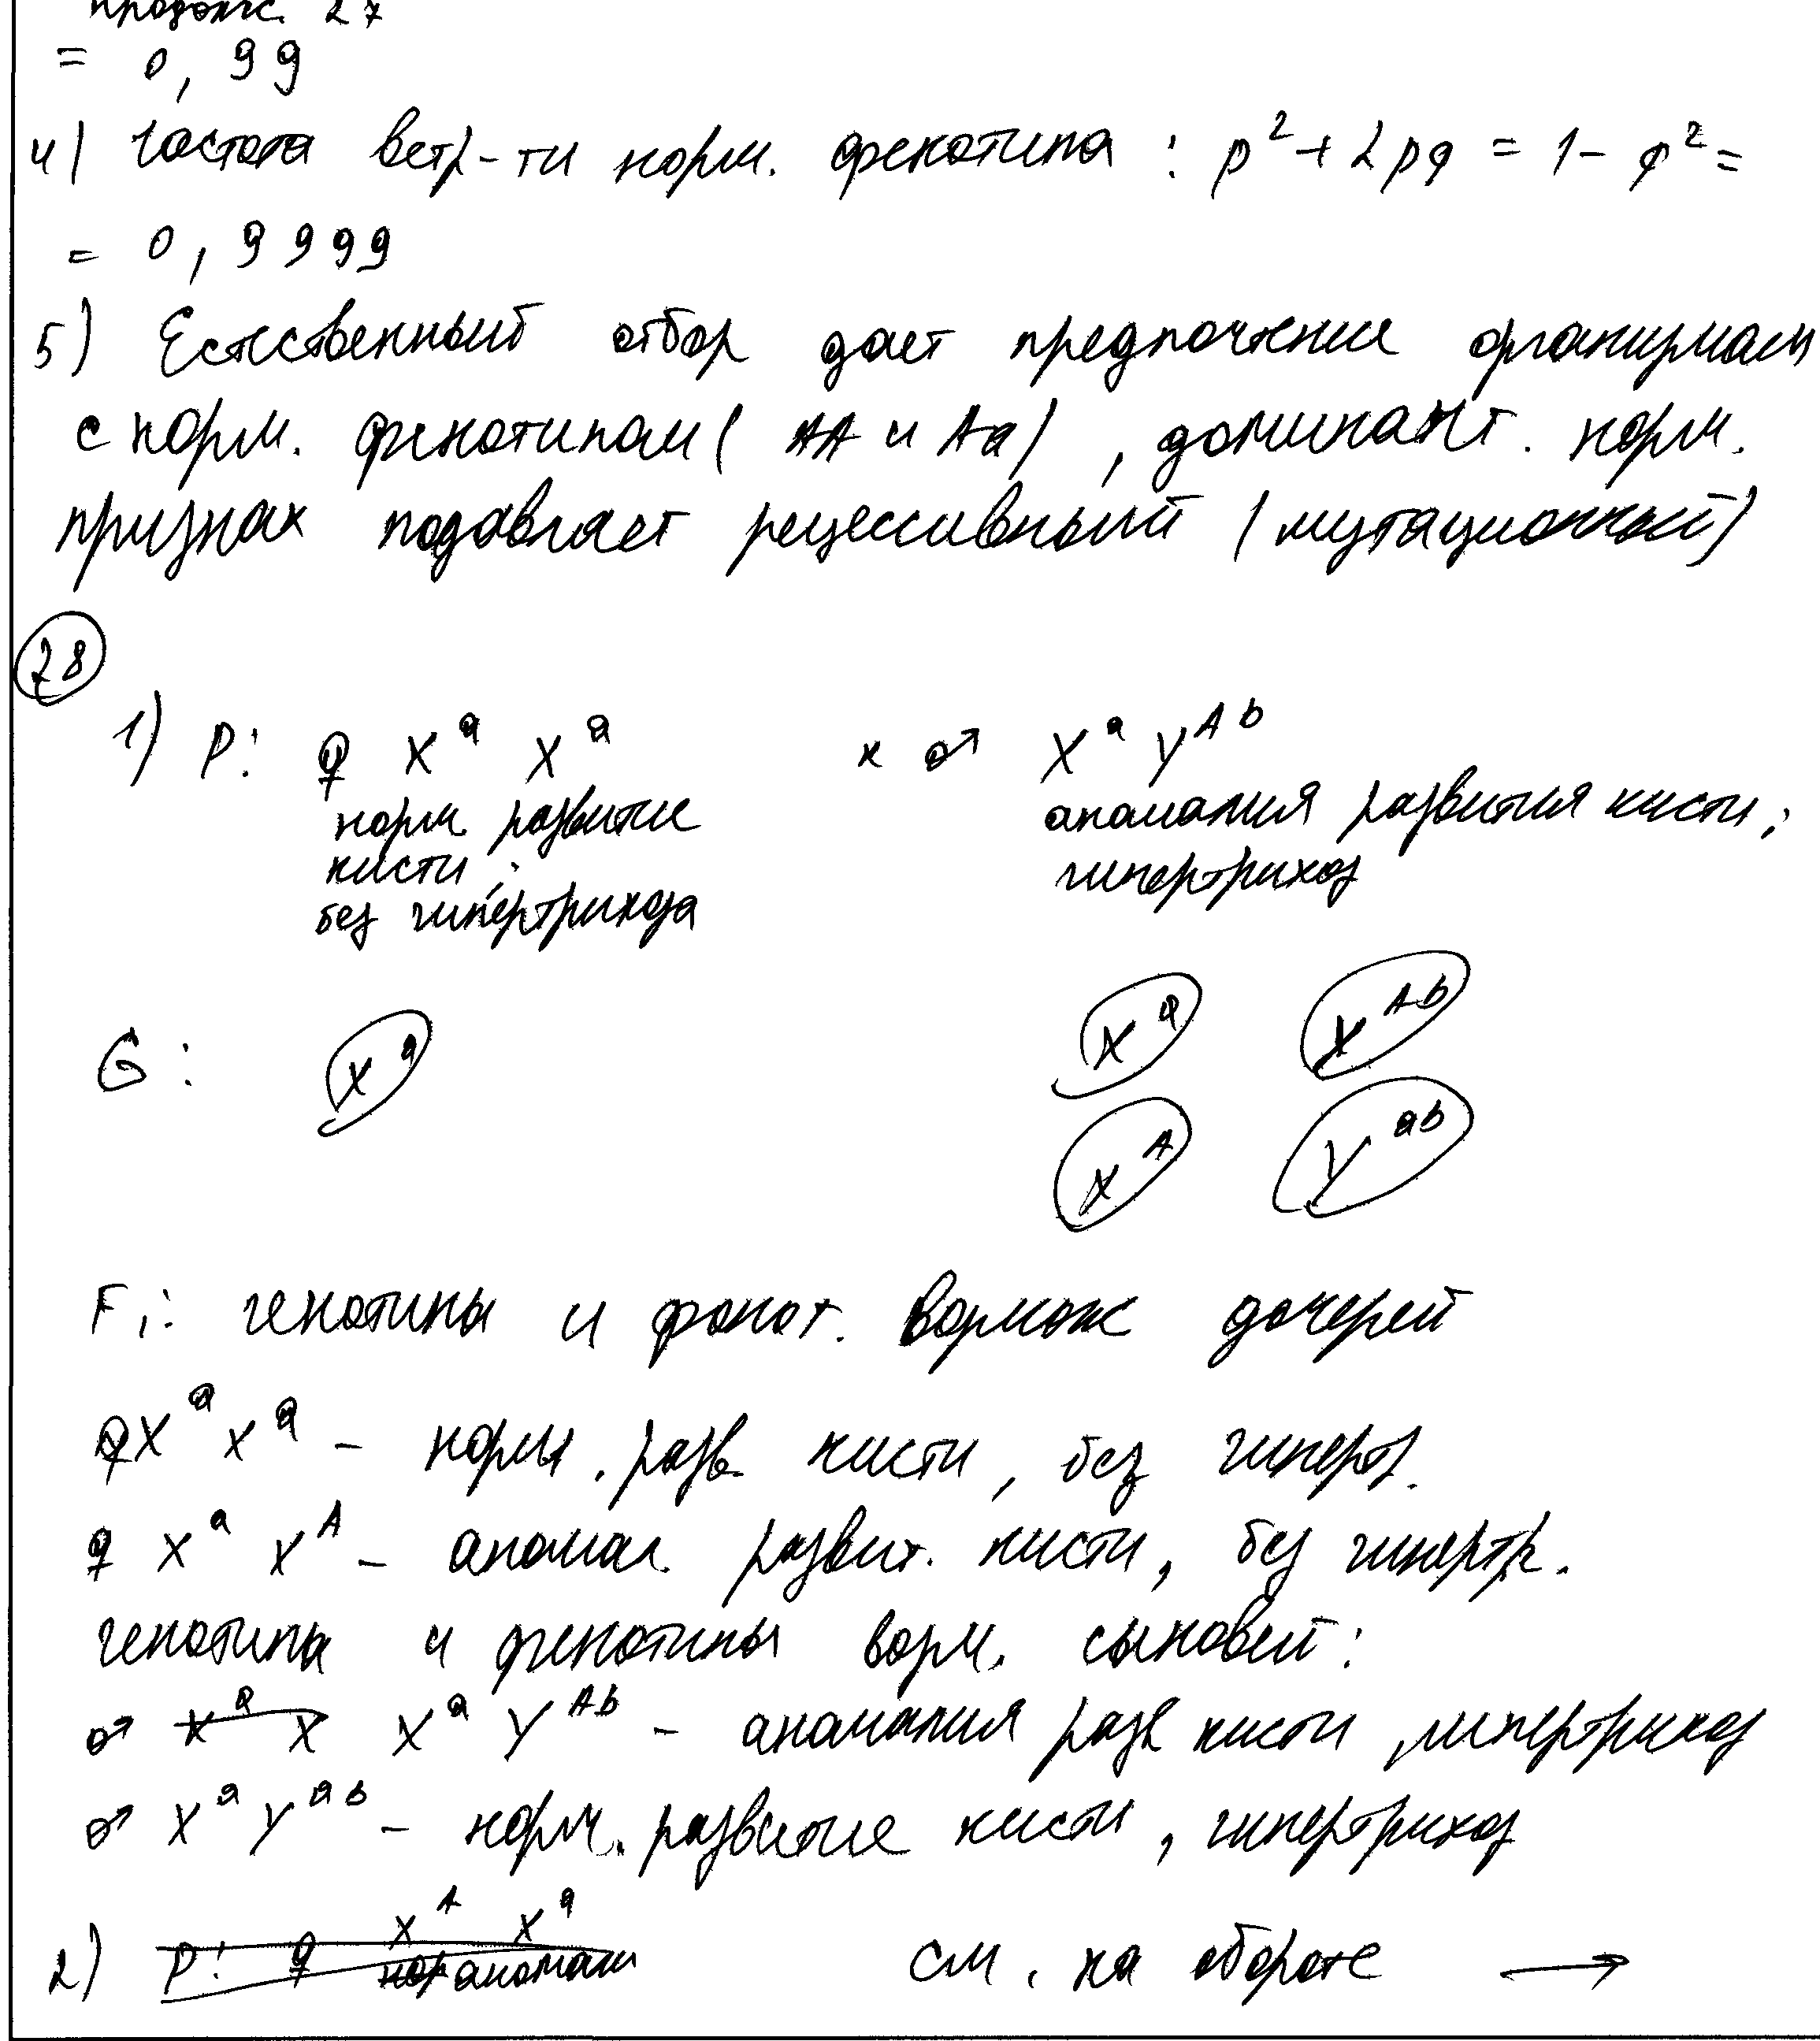 продолж. 27
= 0,99
4) частота встр-ти норм. фенотипа : p² + 2pq = 1 - q² =
= 0,9999
5) Естественный отбор дает предпочтение организмам
с норм. фенотипом (AA и Aa), доминант. норм.
признак подавляет рецессивный (мутационный)
28
1) P: ♀ Xᵃ Xᵃ х ♂ Xᵃ Yᴬᵇ
норм. развитие аномалия развития кисти,
кисти, гипертрихоз
без гипертрихоза
G: Xᵃ Xᵃ Xᴬᵇ
Xᴬ Yᵃᵇ
F₁: генотипы и фенот. возмож дочерей
♀ Xᵃ Xᵃ - норм. разв. кисти, без гиперт.
♀ Xᵃ Xᴬ - аномал. развит. кисти, без гипертр.
генотипы и фенотипы возм. сыновей:
♂ Xᵃ X Xᵃ Yᴬᵇ - аномалия разв кисти, гипертрихоз
♂ Xᵃ Yᵃᵇ - норм. развитие кисти, гипертрихоз
2) P: ♀ Xᴬ Xᵃ см. на обороте →
аномал